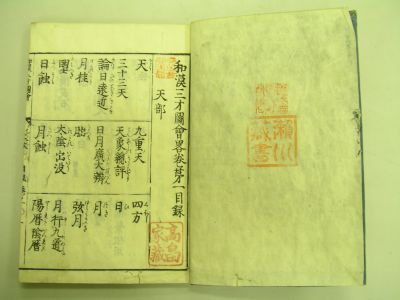 瀬川藏書
和漢三才圖會畧卷第一目録
天部
天 九重天 四方
三十三天 天象總評 日
論日遠近 日月廣大辨 月
月桂 朏 弦月
太陰出没 月行九道
日蝕 月蝕 陽暦陰暦
高畠家藏